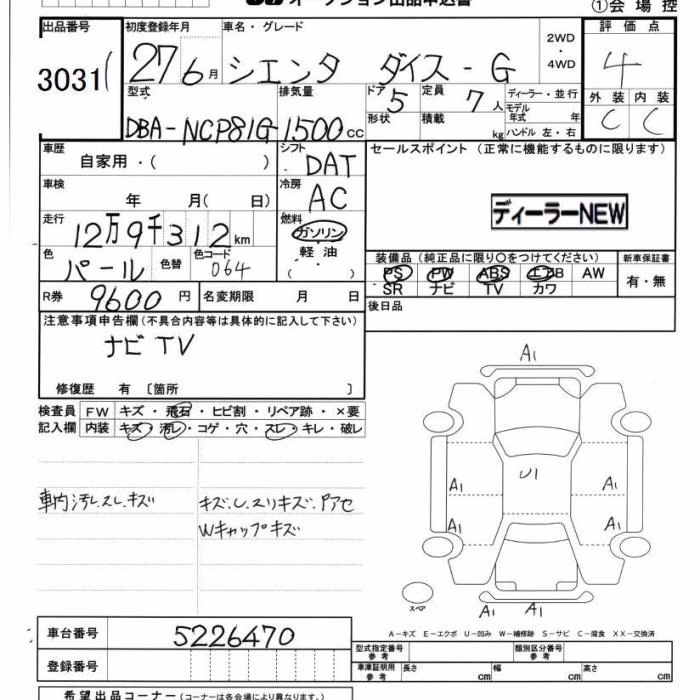 オークション出品申込書
①会場控
出品番号 初度登録年月 車名・グレード 評価点
3031 27 6月 シエンタ ダイス-G 2WD・4WD 4
型式 排気量 ドア 5 定員 7人 ディーラー・並行 外装 内装
DBA-NCP81G 1,500cc 形状 積載 kg モデル年式 年 C C
ハンドル 左・右
車歴 シフト セールスポイント(正常に機能するものに限ります)
自家用・( ) DAT
車検 冷房
年 月( 日) AC ディーラーNEW
走行 燃料
12万9千312km ガソリン
色 色替 色コード 軽油
パール 064 ( )
装備品(純正品に限り○をつけてください) 新車保証書
PS PW ABS エアB AW 有・無
SR ナビ TV カワ
R券 9600円 名変期限 月 日 後日品
注意事項申告欄(不具合内容等は具体的に記入して下さい)
ナビ TV
修復歴 有 〔箇所 〕
検査員 FW キズ・飛石・ヒビ割・リペア跡・×要
記入欄 内装 キズ・汚レ・コゲ・穴・スレ・キレ・破レ
車内汚レ.スレ.キズ キズ.U.スリキズ.Pアセ
Wキャップキズ
A1
U1
A1 A1
A1 A1
スペア A1 A1
A-キズ E-エクボ U-凹み W-補修跡 S-サビ C-腐食 XX-交換済
車台番号 5226470
登録番号
型式指定番号 参考 類別区分番号 参考
車庫証明用 参考 長さ cm 幅 cm 高さ cm
希望出品コーナー(コーナーは各会場により異なります。)